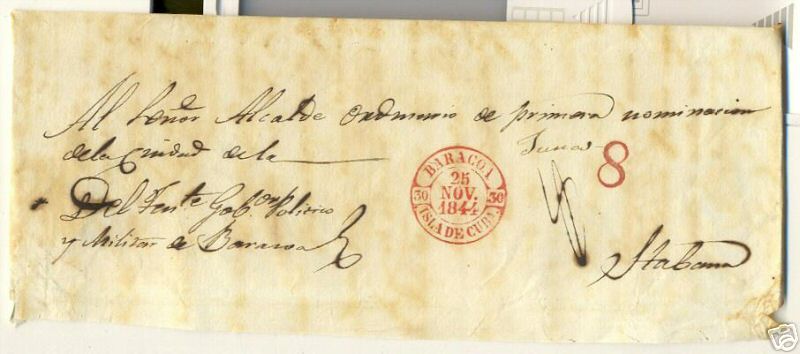 Al Señor Alcalde Ordinario de primera nominacion
de la Ciudad de la
Del Ten.te Gob.or Politico
y Militar de Baracoa
BARACOA
25
NOV.
1844
30
30
ISLA DE CUBA
8
Habana